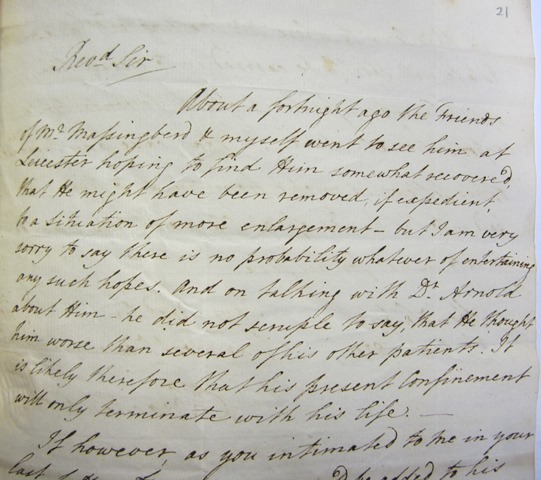 21
Rev.d Sir
About a fortnight ago the Friends
of Mr. Massingberd & myself went to see him at
Leicester hoping to find Him somewhat recover'd,
that He might have been removed, if expedient,
to a situation of more enlargement - but I am very
sorry to say there is no probability whatever of entertaining
any such hopes. And on talking with Dr. Arnold
about Him - he did not scruple to say, that He thought
him worse than several of his other patients. It
is likely therefore that his present Confinement
will only terminate with his life. —
If however, as you intimated to me in your
last be added to his